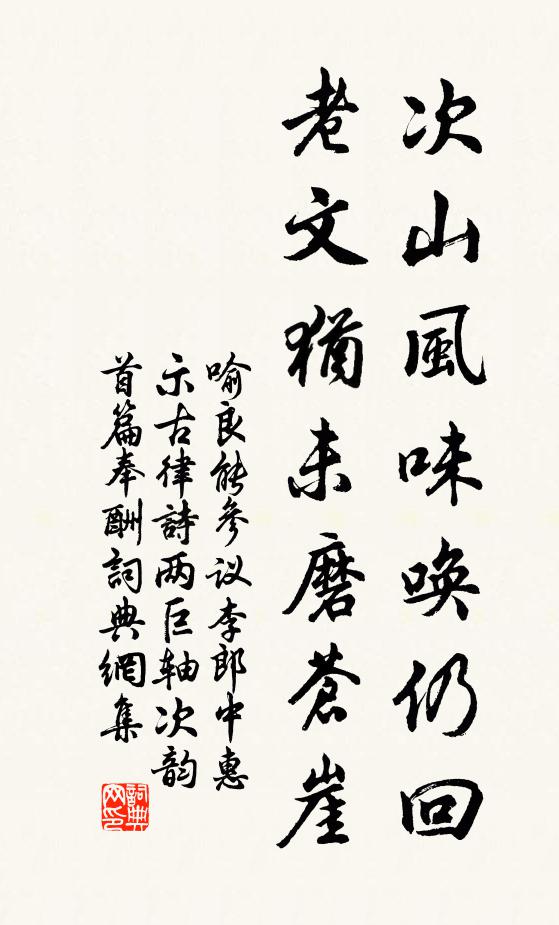 次山風味喚仍回
老文猶未磨蒼崖
喻良能參议李郎中惠
示古律詩两巨轴次韵
首篇奉酬詞典網集
詞典网印